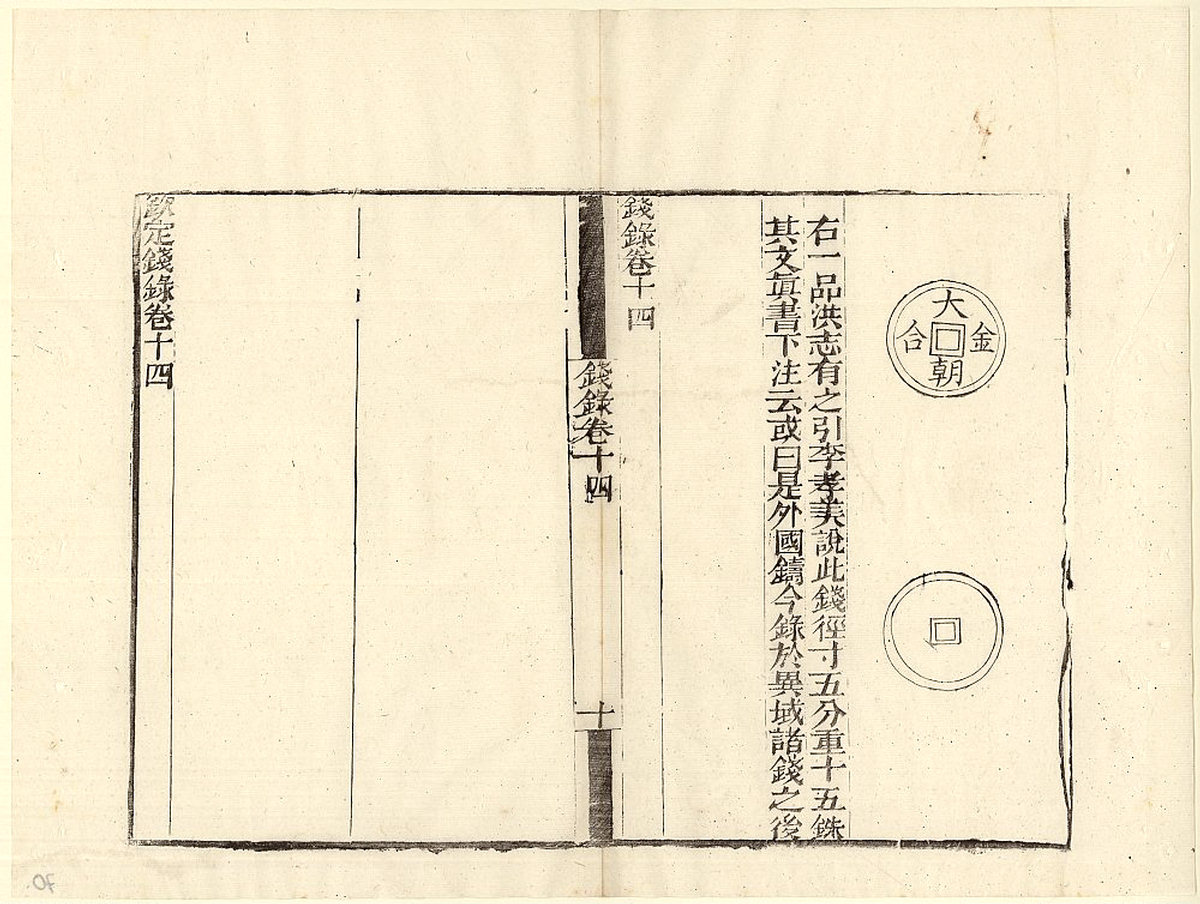 大
金 合
朝
右一品洪志有之引李孝美說此錢徑寸五分重十五銖
其文眞書下注云或曰是外國鑄今錄於異域諸錢之後
錢錄卷十四
錢錄卷十四
十
欽定錢錄卷十四
70.